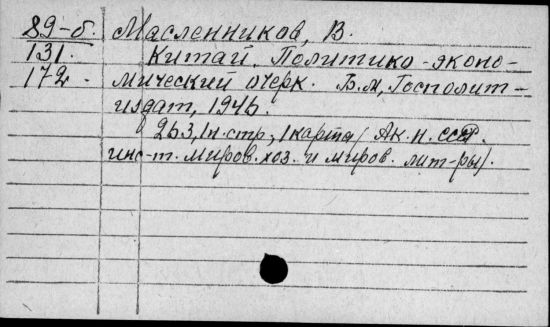 89-б. Масленников, В.
131. Китай. Политико-эконо-
172. мический очерк. Б.м, Госполит-
издат, 1946.
263, 1 н. стр, 1 карта / Ак. н. СССР.
инс-т. миров. хоз. и миров. лит-ры/.